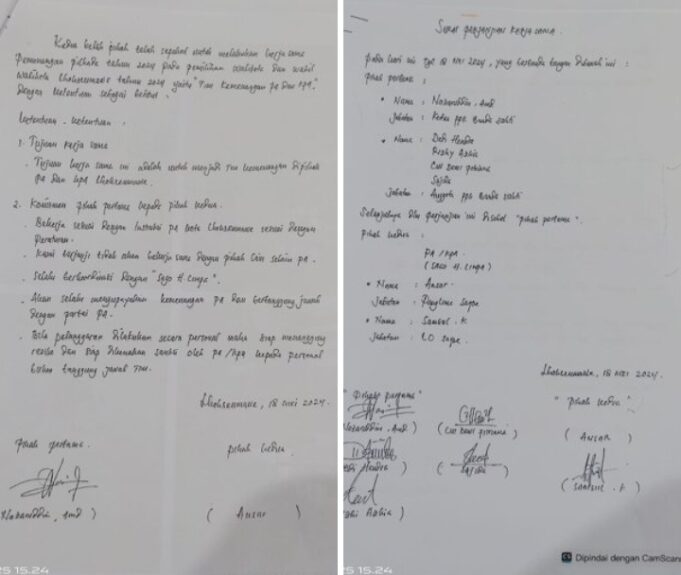 Kedua belah pihak telah sepakat untuk melakukan kerja sama
Pemenangan pilkada tahun 2024 pada pemilihan walikota dan wakil
walikota Lhokseumawe tahun 2024 yaitu "Tim Kemenangan PA dan KPA."
Dengan ketentuan sebagai berikut.
Ketentuan - ketentuan.
1. Tujuan kerja sama
. Tujuan kerja sama ini adalah untuk menjadi Tim kemenangan
PA dan KPA Lhokseumawe.
2. Komitmen pihak pertama kepada pihak kedua.
. Bekerja sesuai dengan PA kota Lhokseumawe sesuai dengan
Peraturan.
. Kami berjanji tidak akan bekerja sama dengan pihak lain selain PA.
. Selalu berkoordinasi dengan "Sago H. Cunpa".
. Akan selalu mengupayakan kemenangan PA dan bertanggung jawab
dengan partai PA.
. Bila pelanggaran dilakukan secara personal maka siap menanggung
resiko dan siap dikenakan sanksi oleh PA/KPA kepada personal
bukan tanggung jawab Tim.
Lhokseumawe, 18 Mei 2024.
Pihak pertama.
pihak kedua
Nazaruddin, Amd )
( Ansar )
25 15.24
Surat perjanjian kerja sama.
Pada hari ini tgl 18 Mei 2024, yang bertanda tangan dibawah ini :
pihak pertama :
• Nama : Nazaruddin, Amd
Jabatan : Ketua ppk Banda Sakti
• Nama : Dedi Hendra
Rizky
Cut Dewi
Sajida
Jabatan : Anggota ppk Banda Sakti
Selanjutnya dlm perjanjian ini disebut "pihak pertama".
Pihak kedua :
PA / KPA.
( Sago H. Cunpa )
• Nama : Ansar.
Jabatan : Panglima Sagoe
• Nama : Samsul. K
Jabatan : L.O Sagoe.
Lhokseumawe, 18 Mei 2024.
" Pihak pertama "
" Pihak kedua "
Nazaruddin, Amd )
( Cut Dewi )
( Ansar )
Hendra )
( Sajida )
( Samsul . K )
)
25 15.24
CS Dipindai dengan CamScan